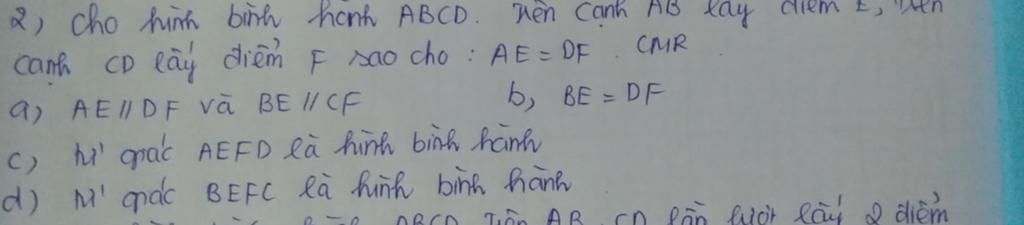 2, Cho hình bình hành ABCD. Trên cạnh AB lấy điểm E, trên
cạnh CD lấy điểm F sao cho : AE = DF . CMR
a) AE // DF và BE // CF b, BE = DF
c) tứ giác AEFD là hình bình hành
d) tứ giác BEFC là hình bình hành
ABCD Trên AB, CD lần lượt lấy 2 điểm